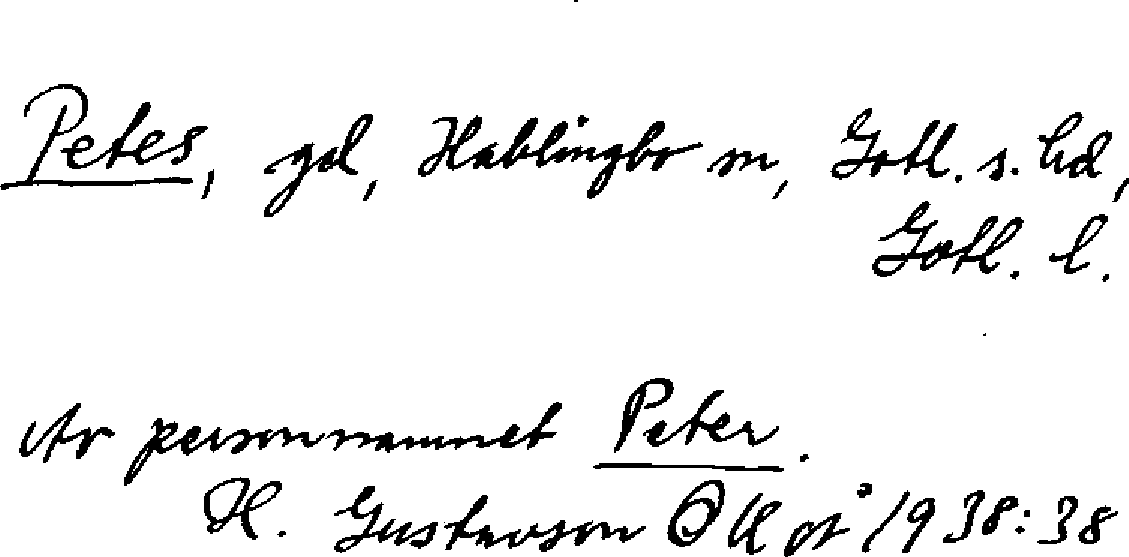 Petes, gd, Hablingbo sn, Gotl. s. hd,
Gotl. l.
Av personnamnet Peter.
H. Gustavson OUÅ 1938:38